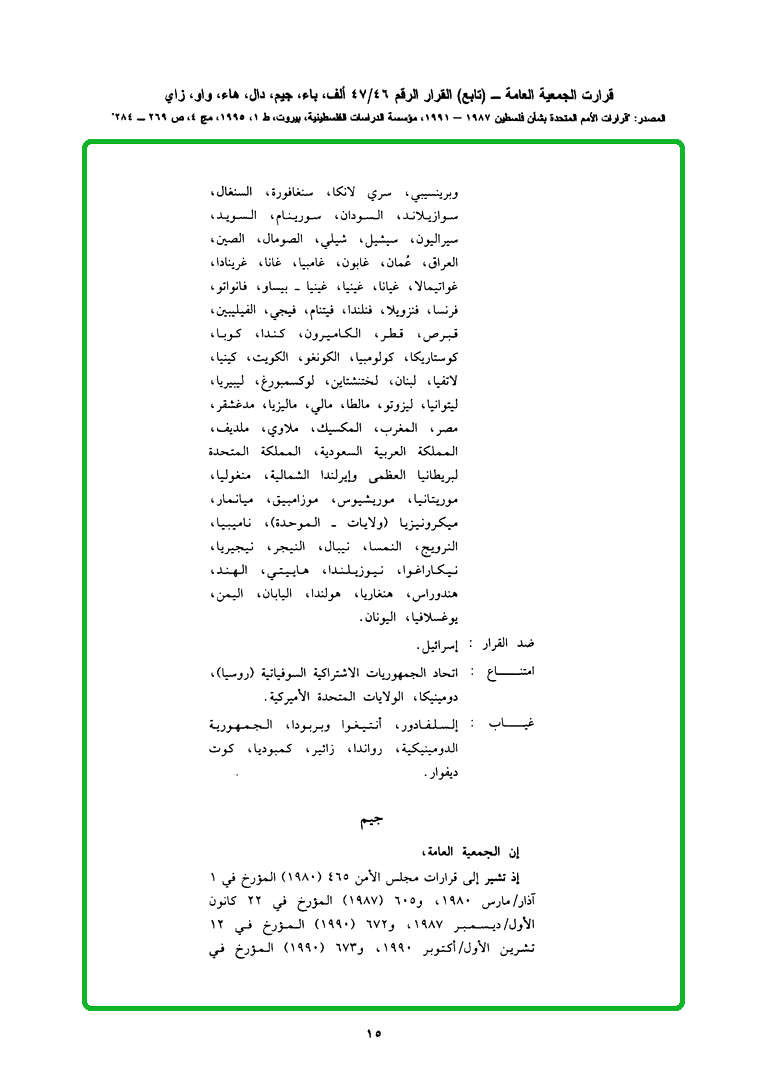 قرارت الجمعية العامة ــ (تابع) القرار الرقم ٤٧/٤٦ ألف، باء، جيم، دال، هاء، واو، زاي
المصدر: "قرارات الأمم المتحدة بشأن فلسطين ١٩٨٧ – ١٩٩١، مؤسسة الدراسات الفلسطينية، بيروت، ط ١، ١٩٩٥، مج ٤، ص ٢٦٩ – ٢٨٤"
وبرينسيبي، سري لانكا، سنغافورة، السنغال،
سوازيلاند، السودان، سورينام، السويد،
سيراليون، سيشيل، شيلي، الصومال، الصين،
العراق، عُمان، غابون، غامبيا، غانا، غرينادا،
غواتيمالا، غيانا، غينيا، غينيا ـ بيساو، فانواتو،
فرنسا، فنزويلا، فنلندا، فيتنام، فيجي، الفيليبين،
قبرص، قطر، الكاميرون، كندا، كوبا،
كوستاريكا، كولومبيا، الكونغو، الكويت، كينيا،
لاتفيا، لبنان، لختنشتاين، لوكسمبورغ، ليبيريا،
ليتوانيا، ليزوتو، مالطا، مالي، ماليزيا، مدغشقر،
مصر، المغرب، المكسيك، ملاوي، ملديف،
المملكة العربية السعودية، المملكة المتحدة
لبريطانيا العظمى وإيرلندا الشمالية، منغوليا،
موريتانيا، موريشيوس، موزامبيق، ميانمار،
ميكرونيزيا (ولايات ـ الموحدة)، ناميبيا،
النرويج، النمسا، نيبال، النيجر، نيجيريا،
نيكاراغوا، نيوزيلندا، هاييتي، الهند،
هندوراس، هنغاريا، هولندا، اليابان، اليمن،
يوغسلافيا، اليونان.
ضد القرار : إسرائيل.
امتنـــــاع : اتحاد الجمهوريات الاشتراكية السوفياتية (روسيا)،
دومينيكا، الولايات المتحدة الأميركية.
غيــــاب : إلسلفادور، أنتيغوا وبربودا، الجمهورية
الدومينيكية، رواندا، زائير، كمبوديا، كوت
ديفوار.
جيم
إن الجمعية العامة،
إذ تشير إلى قرارات مجلس الأمن ٤٦٥ (١٩٨٠) المؤرخ في ١
آذار/مارس ١٩٨٠، و٦٠٥ (١٩٨٧) المؤرخ في ٢٢ كانون
الأول/ديسمبر ١٩٨٧، و٦٧٢ (١٩٩٠) المؤرخ في ١٢
تشرين الأول/أكتوبر ١٩٩٠، و٦٧٣ (١٩٩٠) المؤرخ في
١٥